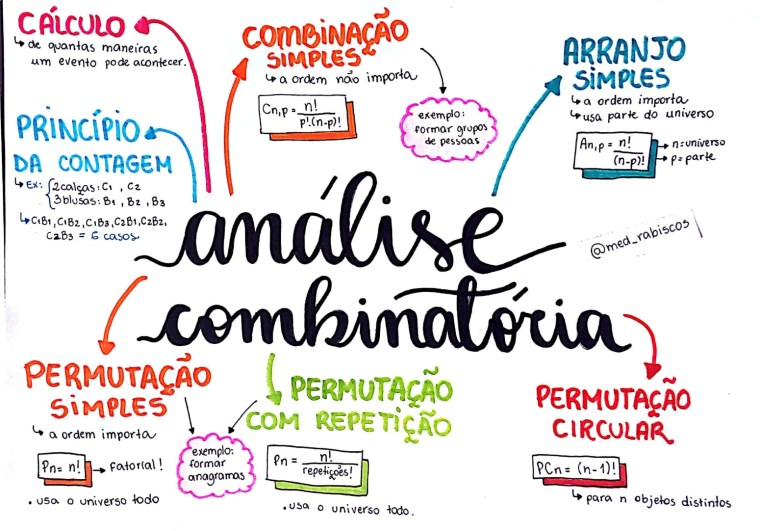 CÁLCULO
↳ de quantas maneiras
um evento pode acontecer.
COMBINAÇÃO
SIMPLES
↳ a ordem não importa
Cn,p = n!
p!.(n-p)!
exemplo:
formar grupos
de pessoas
ARRANJO
SIMPLES
↳ a ordem importa
↳ usa parte do universo
An,p = n!
(n-p)!
→ n = universo
→ p = parte
PRINCÍPIO
DA CONTAGEM
↳ Ex: { 2 calças: C1 , C2
3 blusas: B1 , B2 , B3
↳ C1B1, C1B2, C1B3, C2B1, C2B2,
C2B3 = 6 casos
análise
combinatória
@med_rabiscos
PERMUTAÇÃO
SIMPLES
↳ a ordem importa
Pn = n! → fatorial!
. usa o universo todo
exemplo:
formar
anagramas
PERMUTAÇÃO
COM REPETIÇÃO
Pn = n!
repetições!
. usa o universo todo.
PERMUTAÇÃO
CIRCULAR
PCn = (n-1)!
↳ para n objetos distintos